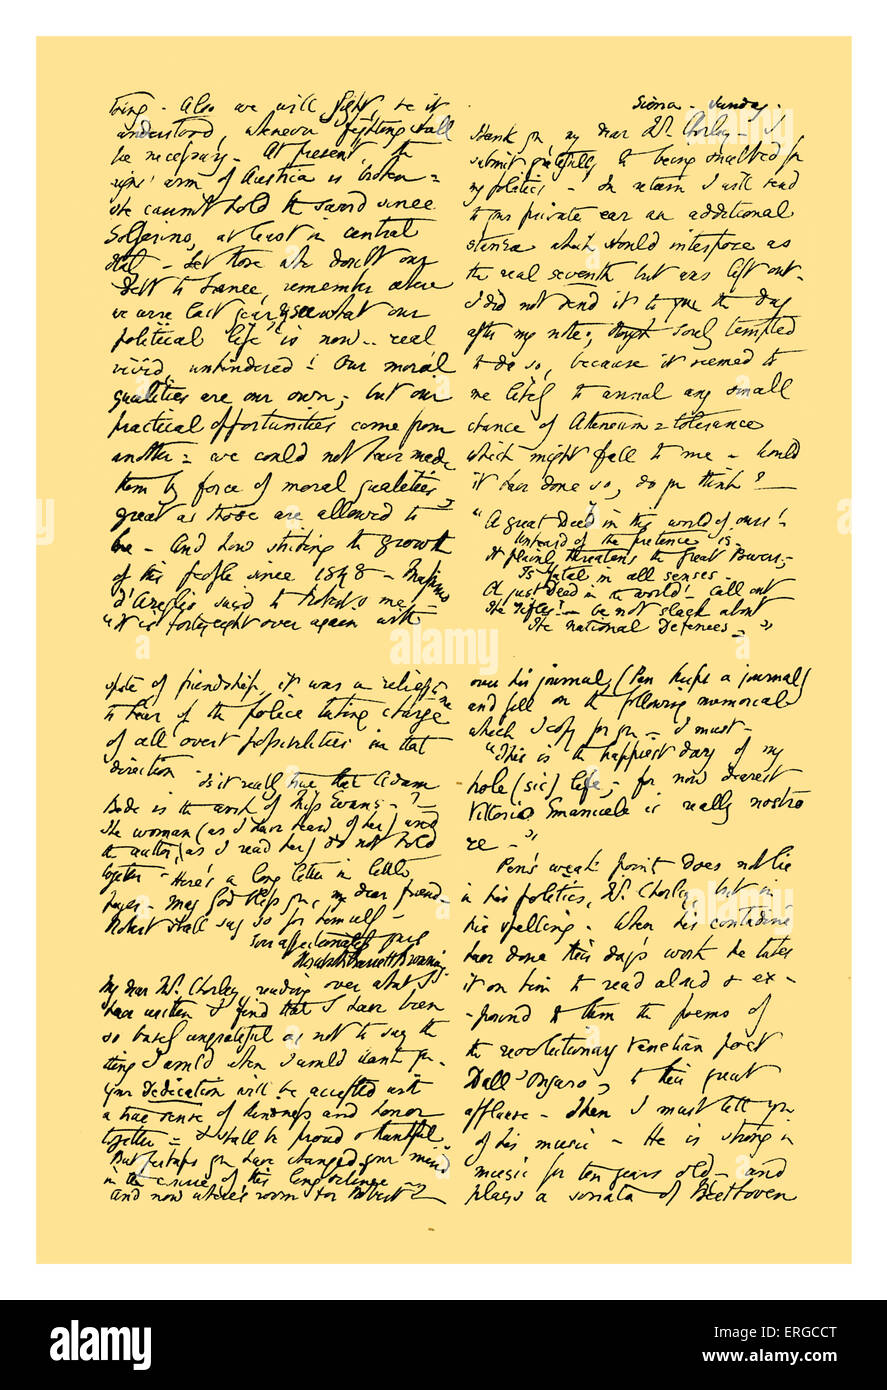 Siena - Sunday.
Thank you, my dear Mr. Chorley - I
submit gratefully to being snubbed for
my politics - In return I will read
to your private ear an additional
stanza which should interpose as
the real seventh but was left out.
I did not send it to you the day
after my note, though sorely tempted
to do so, because it seemed to
me likely to annul any small
chance of Atheneum = tolerance
which might fall to me - Would
it have done so, do you think? -
"A great Deed in this world of ours!
Unheard of the pretence is -
It plainly threatens the Great Powers,-
Is fatal in all senses -
A just deed in the world! call out
the rifles! - be not slack about
the national Defences - "
thing - Also we will fight, be it
understood, whenever fighting shall
be necessary - At present, the
right arm of Austria is broken =
she cannot hold the sword since
Solferino, at least in central
Italy - Let those who doubt our
debt to France, remember where
we were last year, & see what our
political life is now -- real
vivid, unhindered! Our moral
qualities are our own,- but our
practical opportunities come from
another = we could not have made
them by force of moral qualities,
great as those are allowed to
be - And how striking the growth
of this people since 1848 - Massimo
d'Azeglio said to Robert & me,
"It is forty eight over again with
over his journal, (Pen keeps a journal)
and fell on the following memorial
which I copy for you - I must -
"This is the happiest day of my
hole (sic) life,- for now dearest
Vittorio Emanuele is really nostro
re - "
Pen's weak point does not lie
in his politics, Mr. Chorley, but in
his spelling. When his contadini
have done their day's work he takes
it on him to read aloud & ex -
- pound to them the poems of
the revolutionary Venetian poet
Dall' Ongaro, to their great
applause - Then I must tell you
of his music - He is strong in
music for ten years old - and
plays a sonata of Beethoven
spite of friendship, it was a relief to me
to hear of the police taking charge
of all overt popularities in that
direction -
Is it really true that Adam
Bede is the work of Miss Evans - ? -
The woman (as I have heard of her) and
the author, (as I read her) do not hold
together - Here's a long letter in
May God bless you, my dear friend -
Robert shall say so for himself -
Your affectionately
Elizabeth Barrett Browning
My dear Mr. Chorley, reading over what I
have written I find that I have been
so basely ungrateful as not to say the
thing I would when I would thank you.
Your Dedication will be accepted with
a true sense of kindness and honor
together = I shall be proud & thankful
But perhaps you have changed your mind
in the course of this long silence --
and now where's room for Robert?
alamy
a
alamy
Image ID: ERGCCT
www.alamy.com